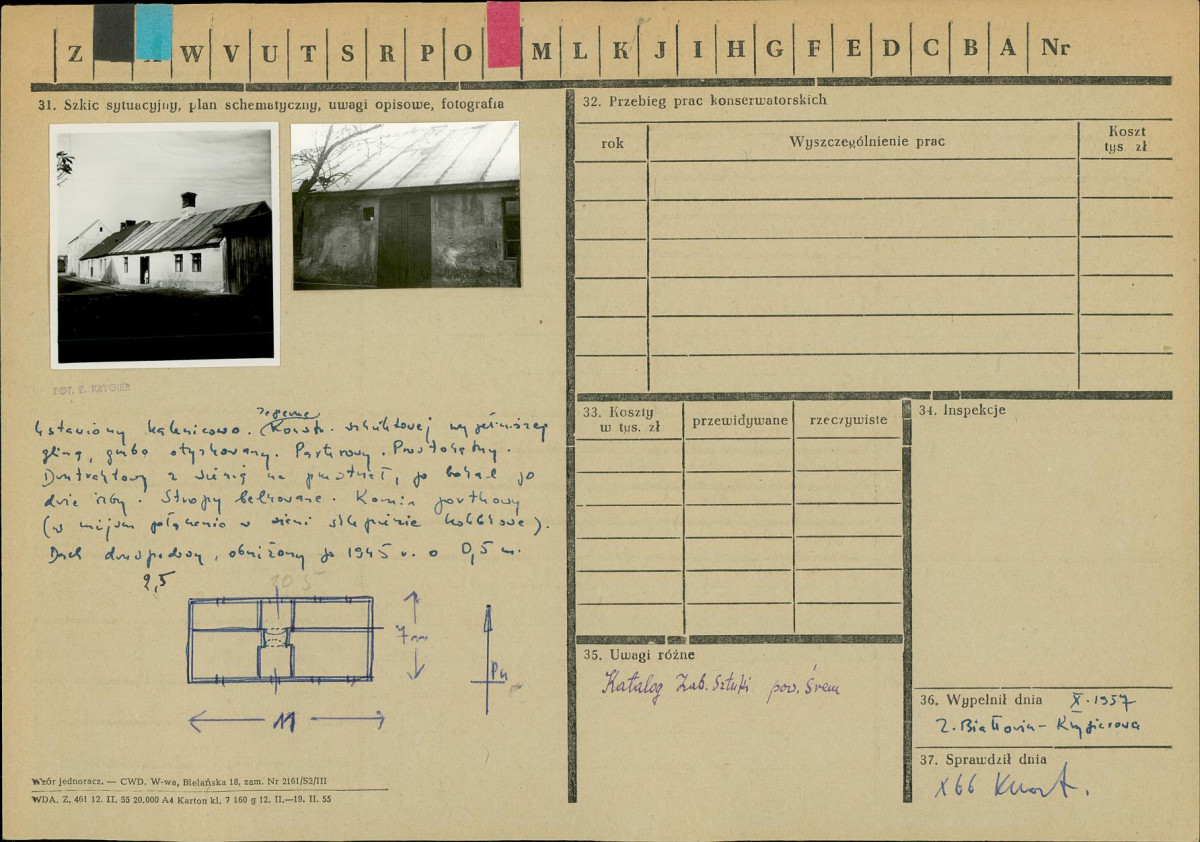 Z W V U T S R P O M L K J I H G F E D C B A Nr
31. Szkic sytuacyjny, plan schematyczny, uwagi opisowe, fotografia
FOT. E. KRYGIER
Ustawiony kalenicowo. Konstr. szkieletowej wypełnionej
gliną, grubo otynkowany. Parterowy. Prostokątny.
Dwutraktowy z sienią na przestrzał, po bokach po
dwie izby. Stropy belkowane. Komin
(w miejscu połączenia w sieni sklepienie kolebkowe).
Dach dwuspadowy, obniżony po 1945 r. o 0,5 m.
2,5
10 5
7 m
Pn
11
Wzór jednoracz. — CWD. W-wa, Bielańska 18, zam. Nr 2161/S2/III
WDA. Z. 461 12. II. 55 20.000 A4 Karton kl. 7 160 g 12. II.—19. II. 55
32. Przebieg prac konserwatorskich
rok Wyszczególnienie prac Koszt
tys zł
33. Koszty
w tys. zł przewidywane rzeczywiste
34. Inspekcje
35. Uwagi różne
Katalog Zab. Sztuki pow. Śrem
36. Wypełnił dnia X. 1957
Z. Białłowicz-Krygierowa
37. Sprawdził dnia
X 66